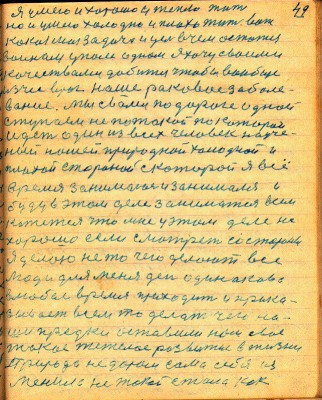 49
Я умею и хорошо и тепло жить
но и умею холодно и плохо жить. вот
какая моя задача и цель в чем остается
в одном я хочу своими
качествами добиться чтобы вообще
наше раковое заболе-
вание. Мы с вами по дороге одной
ступаем не по такой по которой
идет один из всех человек науче-
ный нашей природной холодной и
плохой стороной с которой я всё
время занимаюсь и занимался и
буду в этом деле заниматься всем
кажется что мне у этом деле не
хорошо если смотреть со стороны
Я делаю не то чего делают все
люди для меня день одинаково
в любое время приходит и прика-
зывает всем то делать чего на-
ши предки оставили нам свое
такое тяжелое развитие в жизни
Природа не дорога сама себя из
менила не такой стала как